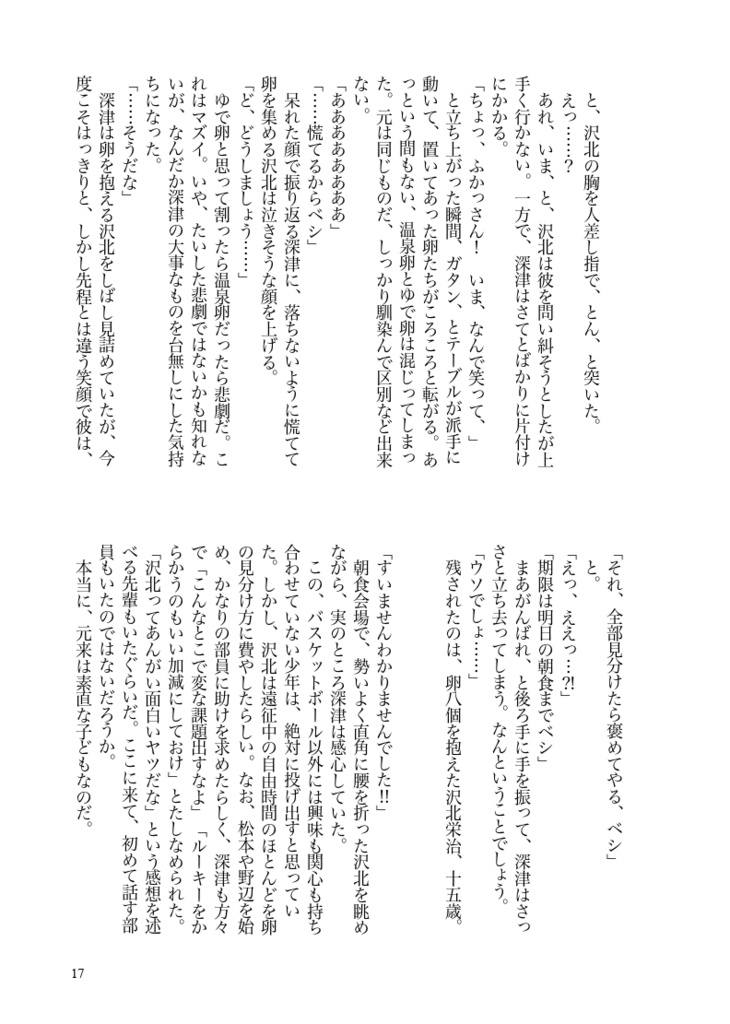 と、沢北の胸を人差し指で、とん、と突いた。
　えっ……？
　あれ、いま、と、沢北は彼を問い糾そうとしたが上
手く行かない。一方で、深津はさてとばかりに片付け
にかかる。
「ちょっ、ふかっさん！　いま、なんで笑って、」
　と立ち上がった瞬間、ガタン、とテーブルが派手に
動いて、置いてあった卵たちがころころと転がる。あ
っという間もない、温泉卵とゆで卵は混じってしまっ
た。元は同じものだ、しっかり馴染んで区別など出来
ない。
「ああああああああ」
「……慌てるからベシ」
　呆れた顔で振り返る深津に、落ちないように慌てて
卵を集める沢北は泣きそうな顔を上げる。
「ど、どうしましょう……」
　ゆで卵と思って割ったら温泉卵だったら悲劇だ。こ
れはマズイ。いや、たいした悲劇ではないかも知れな
いが、なんだか深津の大事なものを台無しにした気持
ちになった。
「……そうだな」
　深津は卵を抱える沢北をしばし見詰めていたが、今
度こそはっきりと、しかし先程とは違う笑顔で彼は、
「それ、全部見分けたら褒めてやる、ベシ」
　と。
「えっ、ええっ…⁈」
「期限は明日の朝食までベシ」
　まあがんばれ、と後ろ手に手を振って、深津はさっ
さと立ち去ってしまう。なんということでしょう。
「ウソでしょ……」
　残されたのは、卵八個を抱えた沢北栄治、十五歳。
「すいませんわかりませんでした‼」
　朝食会場で、勢いよく直角に腰を折った沢北を眺め
ながら、実のところ深津は感心していた。
　この、バスケットボール以外には興味も関心も持ち
合わせていない少年は、絶対に投げ出すと思ってい
た。しかし、沢北は遠征中の自由時間のほとんどを卵
の見分け方に費やしたらしい。なお、松本や野辺を始
め、かなりの部員に助けを求めたらしく、深津も方々
で「こんなとこで変な課題出すなよ」「ルーキーをか
らかうのもいい加減にしておけ」とたしなめられた。
「沢北ってあんがい面白いヤツだな」という感想を述
べる先輩もいたぐらいだ。ここに来て、初めて話す部
員もいたのではないだろうか。
　本当に、元来は素直な子どもなのだ。
17